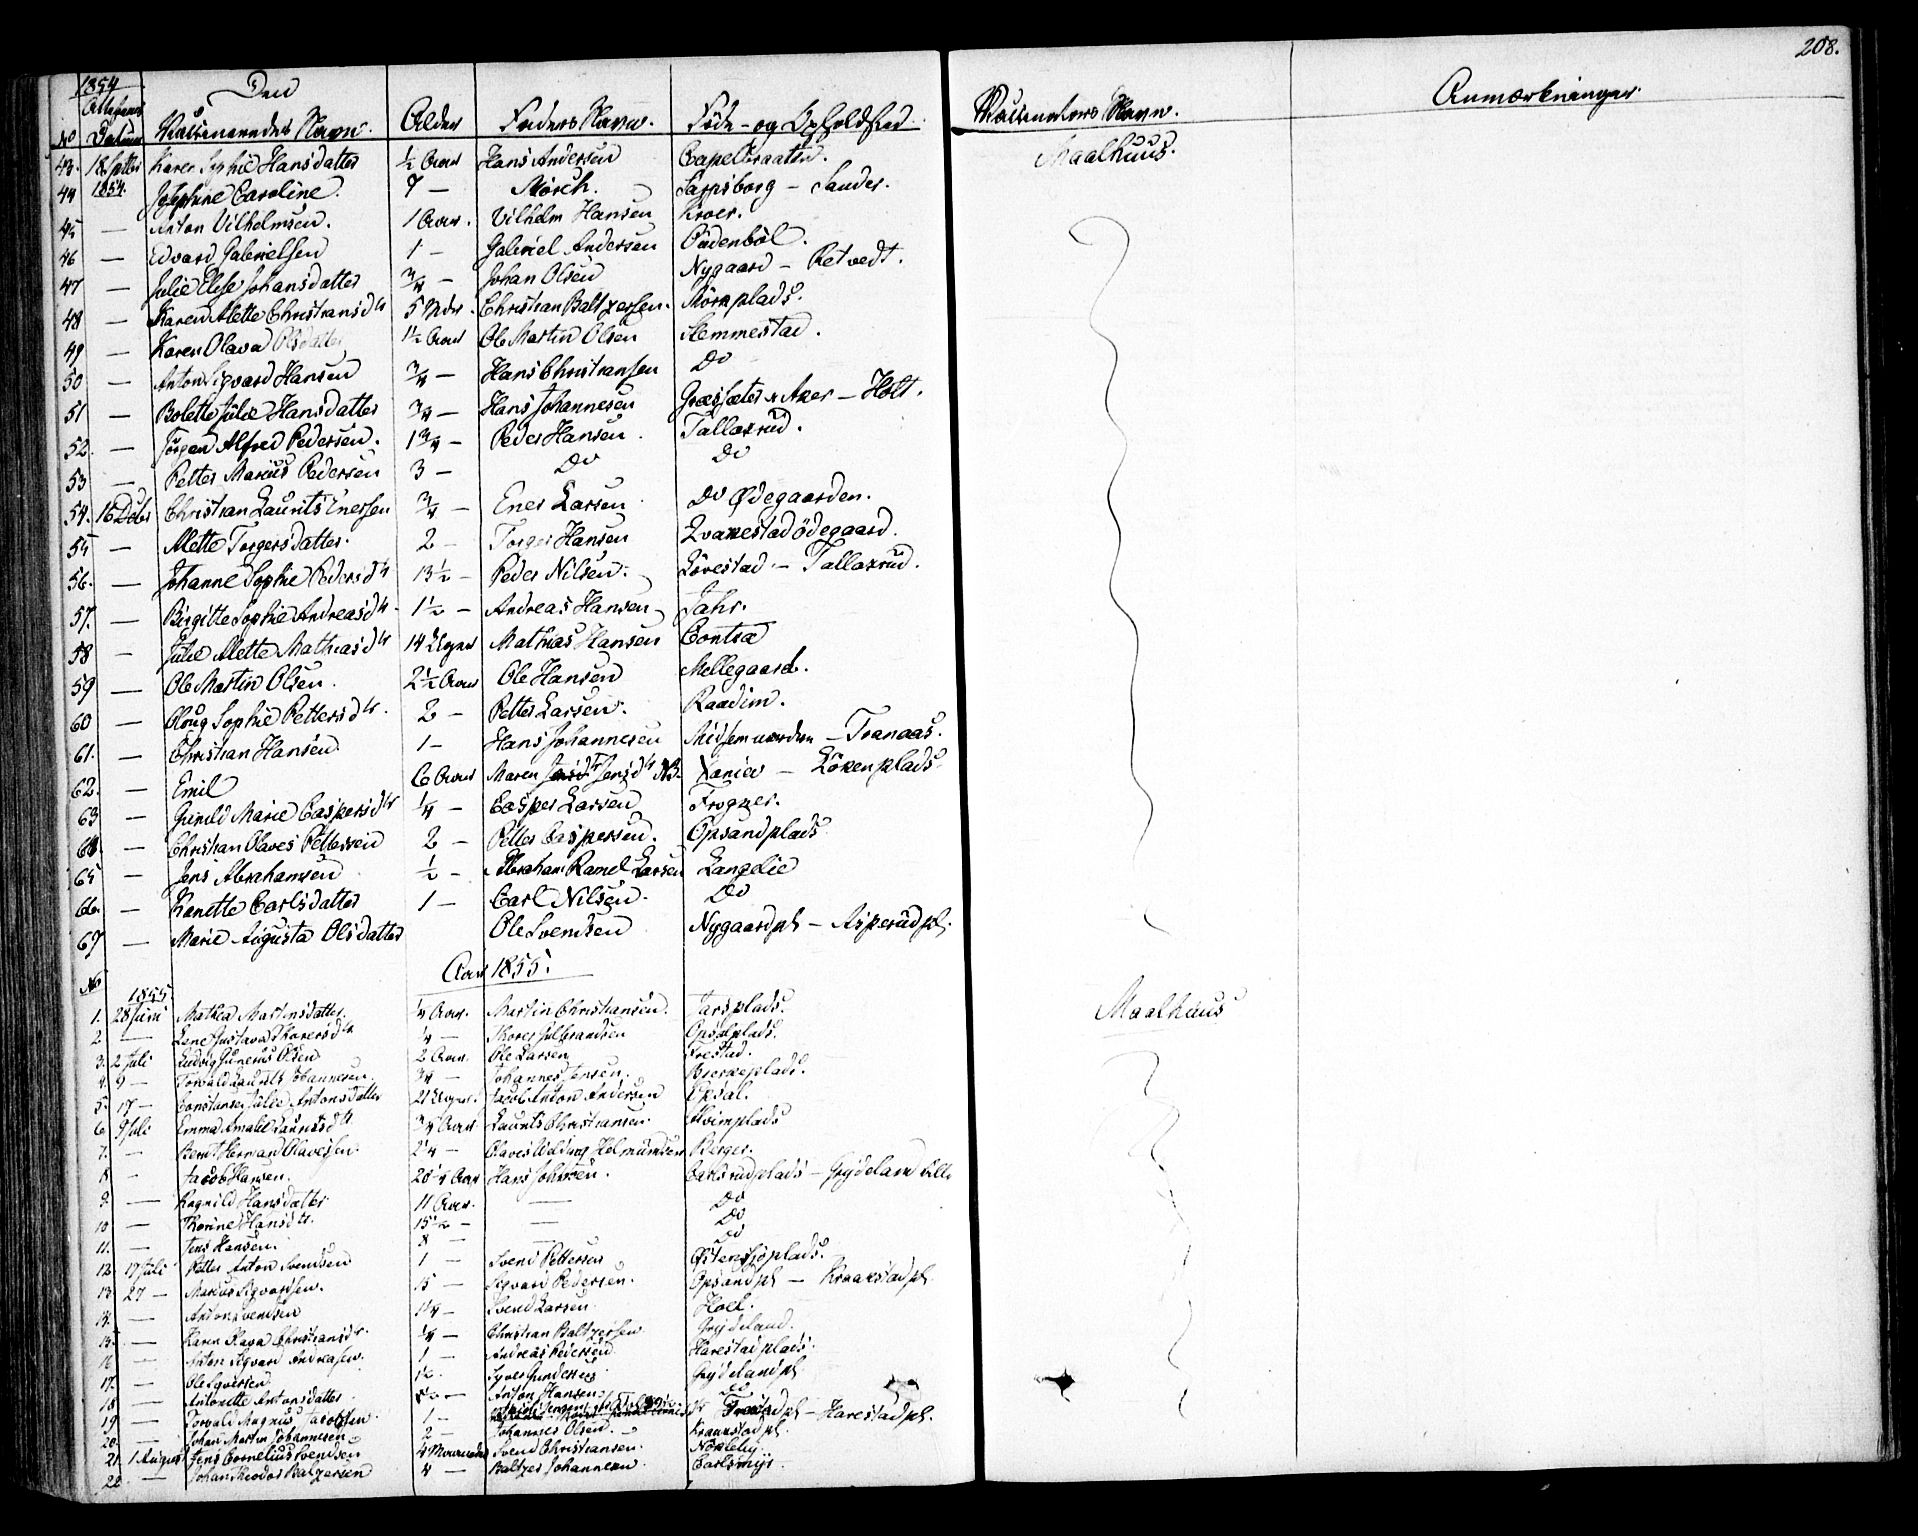 208.
1854
Attestens Datum
No
Den Vaccineredes Navn.
Alder
Faders Navn.
Føde- og Opholdsted.
Vaccinators Navn.
Anmærkninger.
43. 18 Septbr 1854. Karen Sophie Hansdatter ½ Aar Hans Andersen Capelbraaten. Maalhuus.
44 Josephine Caroline. 7 — Mörch. Sarpsborg — Sander.
45 — Anton Vilhelmsen. 1 Aar. Vilhelm Hansen Kroer.
46 — Edvard Gabrielsen 1 — Gabriel Andersen
47 — Julie Elise Johansdatter ¾ — Johan Olsen Nygaard — Retvedt.
48 — Karen Alette Christiansdtr 5 Mdr. Christian Baltzersen. Mörkplads.
49 — Karen Olava Olsdatter 1½ Aar Ole Martin Olsen Stemmestad.
50 — Anton Sigvard Hansen ¾ — Hans Christiansen Do
51 — Bolette Julie Hansdatter ¾ — Hans Johannesen Græssæter — Holt.
52. — Jörgen Alfred Pedersen. 1¾ — Peder Hansen. Tallaxrud.
53 — Petter Marius Pedersen 3 — Do Do
54. 16 Dcbr Christian Laurits Enersen ¾ — Ener Larsen Do Ødegaarden.
55 — Alette Torgersdatter. 2 — Torger Hansen Qvakestadödegaard.
56. — Johanne Sophie Pedersdtr 13½ — Peder Nilsen. Lövestad — Tallaxrud.
57. — Birgitte Sophie Andreasdtr. 1½ — Andreas Hansen Fahr.
58 — Julie Alette Mathiasdtr 14 Uger Mathias Hansen Contra
59 — Ole Martin Olsen. 2½ Aar Ole Hansen Mellegaard.
60 — Oloug Sophie Pettersdtr. 2 — Petter Larsen. Raadim.
61. — Christian Hansen. 1 — Hans Johannesen — Tranaas.
62. — Emil 6 Aar Maren Jensdtr Xania — Lökenplads.
63 — Gunild Marie Caspersdtr ¼ — Casper Larsen Frogner.
64 — Christian Olaves Pettersen 2 — Petter Caspersen. Opsandplads
65 — Jens Abrahamsen ½ — Abraham Ramel Larsen Langelie
66. — Hanette Carlsdatter 1 — Carl Nilsen. Do
67 — Marie Augusta Olsdatter Ole Svendsen Nygaardpl — Asperudpl.
Aar 1855.
No 1855.
1. 28 Juni Mathea Martinsdatter. ¼ Aar. Martin Christiansen. Maalhuus
2 — Lene Gustava Thoresdtr ¼ — Thorer Gulbrandsen Opsalplads.
3. 2 Juli Ludvig Gunerus Olsen 2 Aar Ole Larsen Frestad.
4. 9 — Torvald Laurits Johannesen. ¾ — Johannes Jensen. Bierkeplads.
5. 17 — Constanse Julie Antonsdatter 21 Uger. Jacob Anton Andersen Opsal.
6. 9 Juli Emma Amalie Lauritsdtr ¾ Aar Laurits Christiansen. Hvimplads
7. — Bernt Herman Olavesen. 2¼ — Olaves Helmundsen Berger.
8 — Jacob Hansen. Hans Johnsen. Carlsrudplads — Grydeland
9. — Ragnild Hansdatter 11 Aar. — Do
10 — Thorine Hansdtr. 15½ — — Do
11. — Jens Hansen. 8 — Do
12 17 Juli Petter Anton Svendsen 1 — Svend Pettersen Østensjøplads.
13. 27 — Marius Sigvardsen. Sigvard Pedersen. Opsandpl — Kraakstadpl.
14. — Anton Svendsen Svend Larsen Hoel.
15. — Karen Olava Christiansdtr. ¼ — Christian Baltzersen Grydeland.
16 — Anton Sigvard Andreasen. 1 — Andreas Pedersen Harestadplads.
17. — Ole Syversen 1½. Syver Gundersen Grydelandpl
18 — Antonette Antonsdatter. Anton Hansen. Do
19 — Torvald Magnus Jacobsen. 1 — Frestadpl — Harestadpl.
20. — Johan Martin Johannesen 2 — Johannes Olsen. Kraakstadpl.
21. 1 August Jens Cornelius Svendsen 4 Maaneder Svend Christiansen. Nordby.
22. — Johan Theodor Baltzersen 4 — Baltzer Johannesen. Carlsmyr.